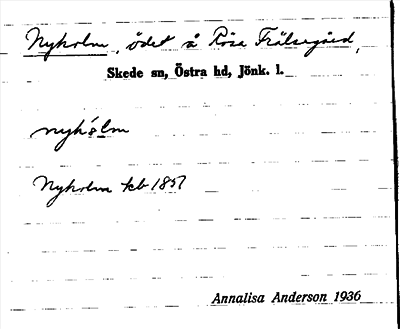 Nyholm, ödet å Rösa Frälsegård,
Skede sn, Östra hd, Jönk. l.
nyhólm
Nyholm kb 1857
Annalisa Anderson 1936